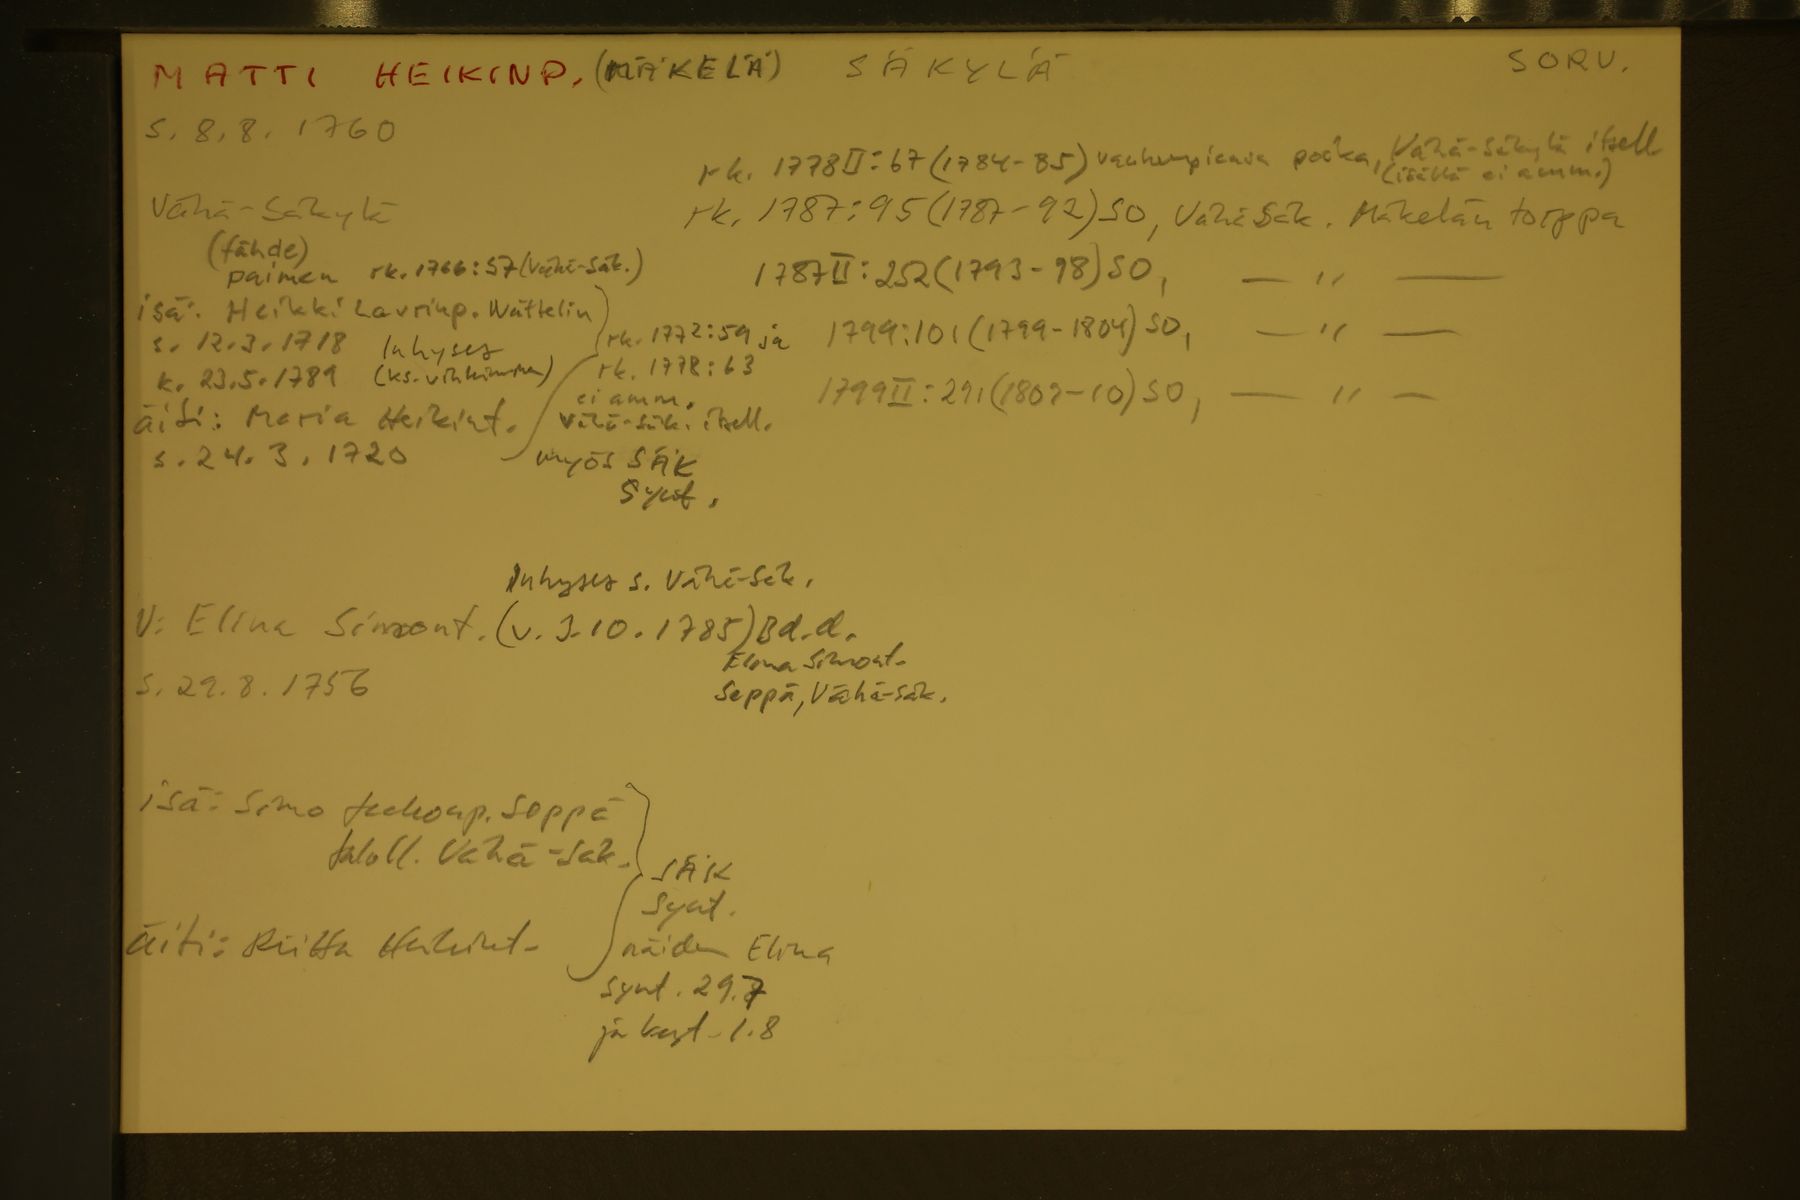 MATTI HEIKINP. (MÄKELÄ) SÄKYLÄ SORV.
s. 8.8. 1760
rk. 1778 II: 67 (1784-85) vanhempiensa poika, Vähä-Säkylä itsell.
(isällä ei amm.)
Vähä-Säkylä
rk. 1787: 95 (1787-92) SO, VähäSäk. Mäkelän torppa
(fähde)
paimen rk. 1766: 57 (Vähä-Säk.)
1787 II: 252 (1793-98) SO, — " —
isä: Heikki Laurinp. Wättelin
s. 12.3.1718 Inhyses
rk. 1772: 59 ja
1799: 101 (1799-1804) SO, — " —
k. 23.5.1789 (ks. vihkiminen)
rk. 1778: 63
ei amm.
1799 II: 291 (1803-10) SO, — " —
äiti: Maria Heikint.
Vähä-Säk. itsell.
s. 24.3.1720
myös SÄK
synt.
Inhyses s. Vähä-Säk.
V: Elina Simont. (v. 3.10.1785) Bd.d.
Elina Simont.
s. 29.8.1756
Seppä, Vähä-Säk.
isä: Simo Seppä
taloll. Vähä-Säk.
SÄK
synt.
äiti: Riitta Heikint.
näiden Elina
synt. 29.7
ja kast. 1.8